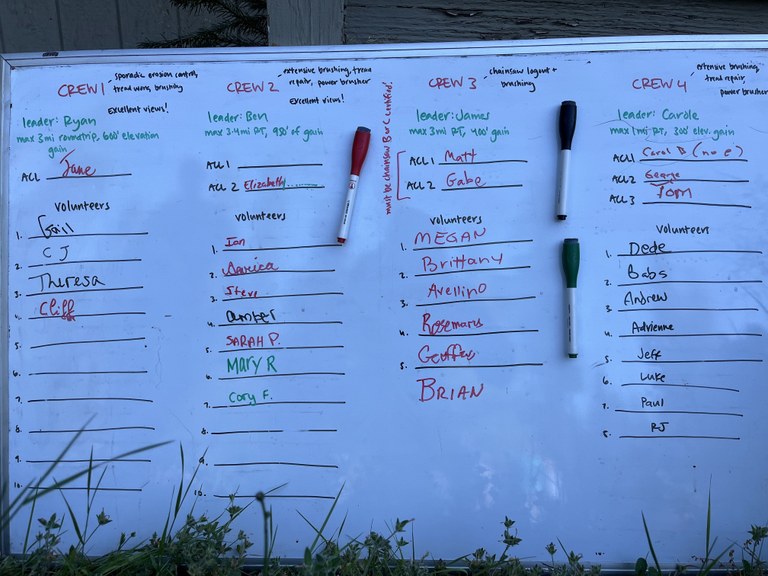 CREW 1
sporadic erosion control,
tread work, brushing
Excellent views!
leader: Ryan
max 3mi roundtrip, 600' elevation
gain
ACL Jane
volunteers
1. Gaill
2. CJ
3. Theresa
4. Cliff
5.
6.
7.
8.
9.
10.
CREW 2
extensive brushing, tread
repair, power brusher
Excellent views!
leader: Ben
max 3-4mi RT, 980' of gain
ACL 1
ACL 2 Elizabeth
volunteers
1. Ian
2.
3. Steve
4.
5. SARAH P.
6. Mary R
7. Cory F.
8.
9.
10.
CREW 3
chainsaw logout +
brushing
must be chainsaw B or C certified!
leader: James
max 3mi RT, 400' gain
ACL 1 Matt
ACL 2 Gabe
volunteers
1. MEGAN
2. Brittany
3. Avellino
4. Rosemary
5.
BRIAN
CREW 4
extensive brushing,
tread repair,
power brusher
leader: Carole
max 1mi RT, 300' elev. gain
ACL1 Carol B (no e)
ACL 2 George
ACL 3 Tom
volunteers
1. Dede
2. Babs
3. Andrew
4. Adrienne
5. Jeff
6. Luke
7. Paul
8. RJ